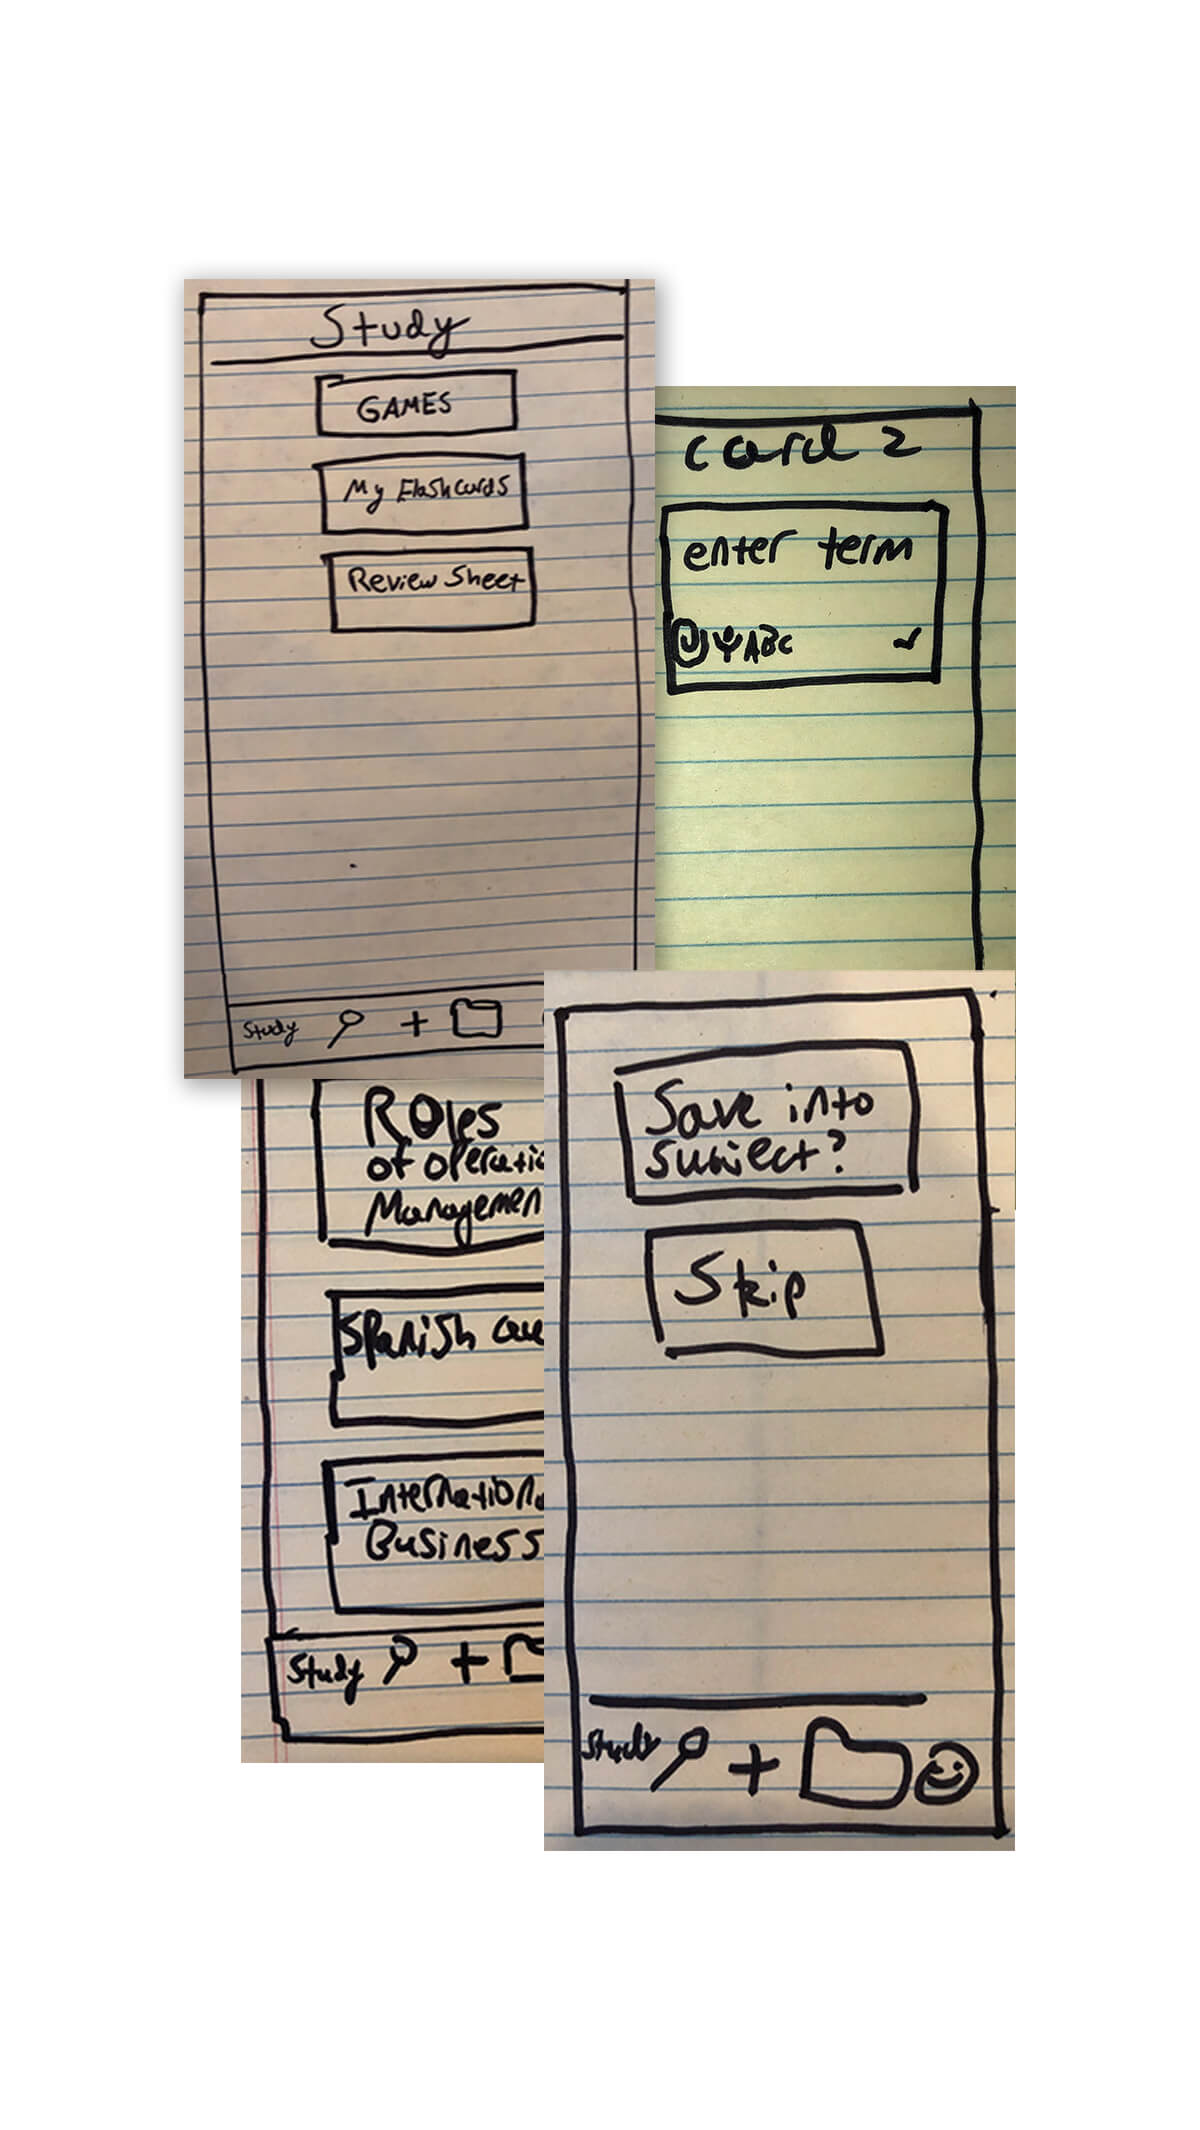 Study
GAMES
My Flashcards
Review Sheet
Study
card 2
enter term
ABC
Roles
of operatio
Managemen
Spanish
Internationa
Business
Study
Save into
subject?
Skip
Study